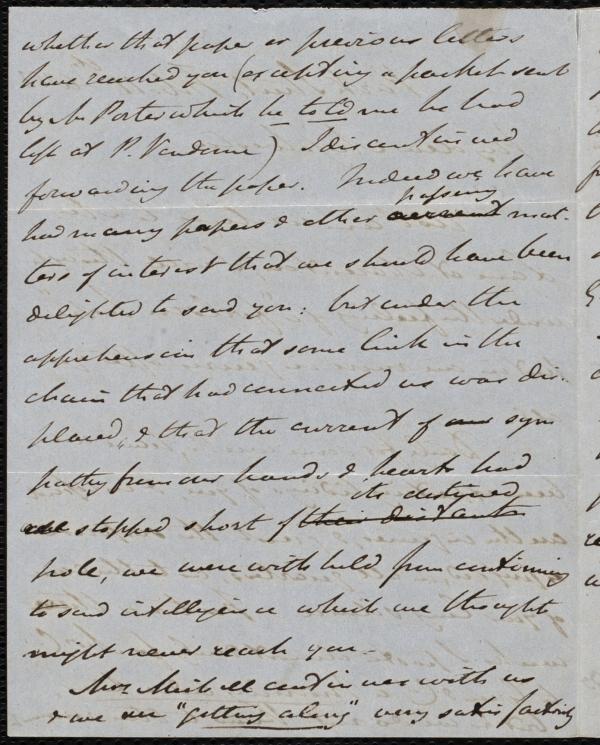 whether that paper or previous letters
have reached you (excepting a packet sent
by Mr Porter which he told me he had
left at P. Vendome) I discontinued
forwarding the paper. Indeed we have
passing
had many papers & other current mat-
ters of interest that we should have been
delighted to send you: but under the
apprehension that some link in the
chain that had connected us was dis-
placed, & that the current of our sym
pathy from our hands & hearts had
its destined
stopped short of their distant
pole, we were withheld from continuing
to send intelligence which we thought
might never reach you.
Mrs Michell continues with us
& we are "getting along" very satisfactorily